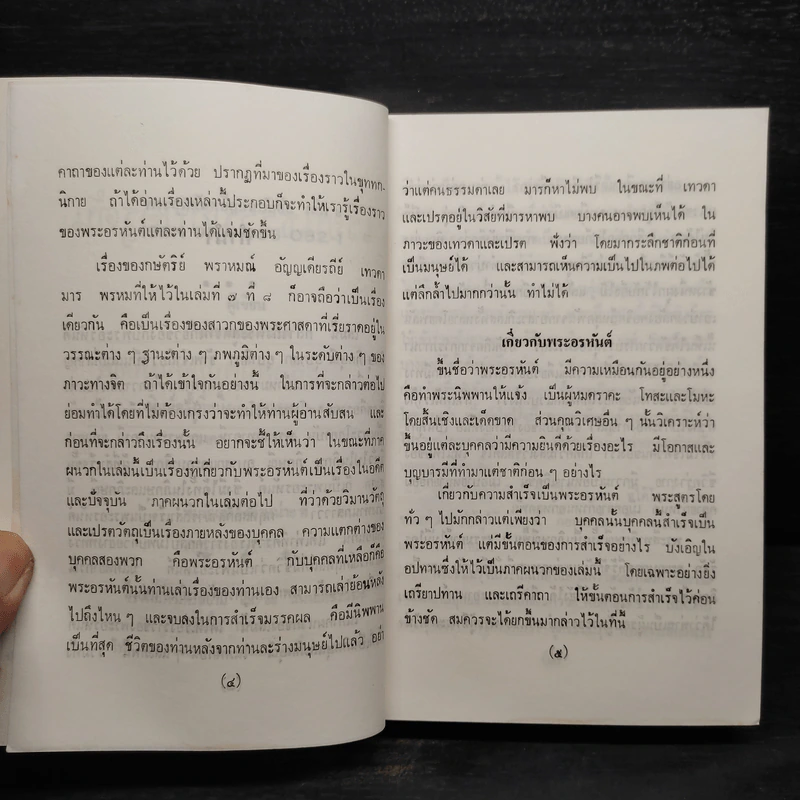 คาถาของแต่ละท่านไว้ด้วย ปรากฏที่มาของเรื่องราวในขุททก-
นิกาย ถ้าได้อ่านเรื่องเหล่านี้ประกอบก็จะทำให้เรารู้เรื่องราว
ของพระอรหันต์แต่ละท่านได้แจ่มชัดขึ้น
เรื่องของกษัตริย์ พราหมณ์ อัญญเดียรถีย์ เทวดา
มาร พรหมที่ให้ไว้ในเล่มที่ ๗ ที่ ๘ ก็อาจถือว่าเป็นเรื่อง
เดียวกัน คือเป็นเรื่องของสาวกของพระศาสดาที่เรี่ยราดอยู่ใน
วรรณะต่าง ๆ ฐานะต่าง ๆ ภพภูมิต่าง ๆ ในระดับต่าง ๆ ของ
ภาวะทางจิต ถ้าได้เข้าใจกันอย่างนี้ ในการที่จะกล่าวต่อไป
ย่อมทำได้โดยที่ไม่ต้องเกรงว่าจะทำให้ท่านผู้อ่านสับสน และ
ก่อนที่จะกล่าวถึงเรื่องนั้น อยากจะชี้ให้เห็นว่า ในขณะที่ภาค
ผนวกในเล่มนี้เป็นเรื่องที่เกี่ยวกับพระอรหันต์เป็นเรื่องในอดีต
และปัจจุบัน ภาคผนวกในเล่มต่อไป ที่ว่าด้วยวิมานวัตถุ
และเปรตวัตถุเป็นเรื่องภายหลังของบุคคล ความแตกต่างของ
บุคคลสองพวก คือพระอรหันต์ กับบุคคลที่เหลือก็คือ
พระอรหันต์นั้นท่านเล่าเรื่องของท่านเอง สามารถเล่าย้อนหลัง
ไปถึงไหน ๆ และจบลงในการสำเร็จมรรคผล คือมีนิพพาน
เป็นที่สุด ชีวิตของท่านหลังจากท่านละร่างมนุษย์ไปแล้ว อย่า
(๔)
ว่าแต่คนธรรมดาเลย มารก็หาไม่พบ ในขณะที่ เทวดา
และเปรตอยู่ในวิสัยที่มารหาพบ บางคนอาจพบเห็นได้ ใน
ภาวะของเทวดาและเปรต พึ่งว่า โดยมากระลึกชาติก่อนที่
เป็นมนุษย์ได้ และสามารถเห็นความเป็นไปในภพต่อไปได้
แต่ลึกล้ำไปมากกว่านั้น ทำไม่ได้
เกี่ยวกับพระอรหันต์
ขึ้นชื่อว่าพระอรหันต์ มีความเหมือนกันอยู่อย่างหนึ่ง
คือทำพระนิพพานให้แจ้ง เป็นผู้หมดราคะ โทสะและโมหะ
โดยสิ้นเชิงและเด็ดขาด ส่วนคุณวิเศษอื่น ๆ นั้นวิเคราะห์ว่า
ขึ้นอยู่แต่ละบุคคลว่ามีความยินดีด้วยเรื่องอะไร มีโอกาสและ
บุญบารมีที่ทำมาแต่ชาติก่อน ๆ อย่างไร
เกี่ยวกับความสำเร็จเป็นพระอรหันต์ พระสูตรโดย
ทั่ว ๆ ไปมักกล่าวแต่เพียงว่า บุคคลนั้นบุคคลนี้สำเร็จเป็น
พระอรหันต์ แต่มีขั้นตอนของการสำเร็จอย่างไร บังเอิญใน
อปทานซึ่งให้ไว้เป็นภาคผนวกของเล่มนี้ โดยเฉพาะอย่างยิ่ง
เถรียาปทาน และเถรีคาถา ให้ขั้นตอนการสำเร็จไว้ค่อน
ข้างชัด สมควรจะได้ยกขึ้นมากล่าวไว้ในที่นี้
(๕)